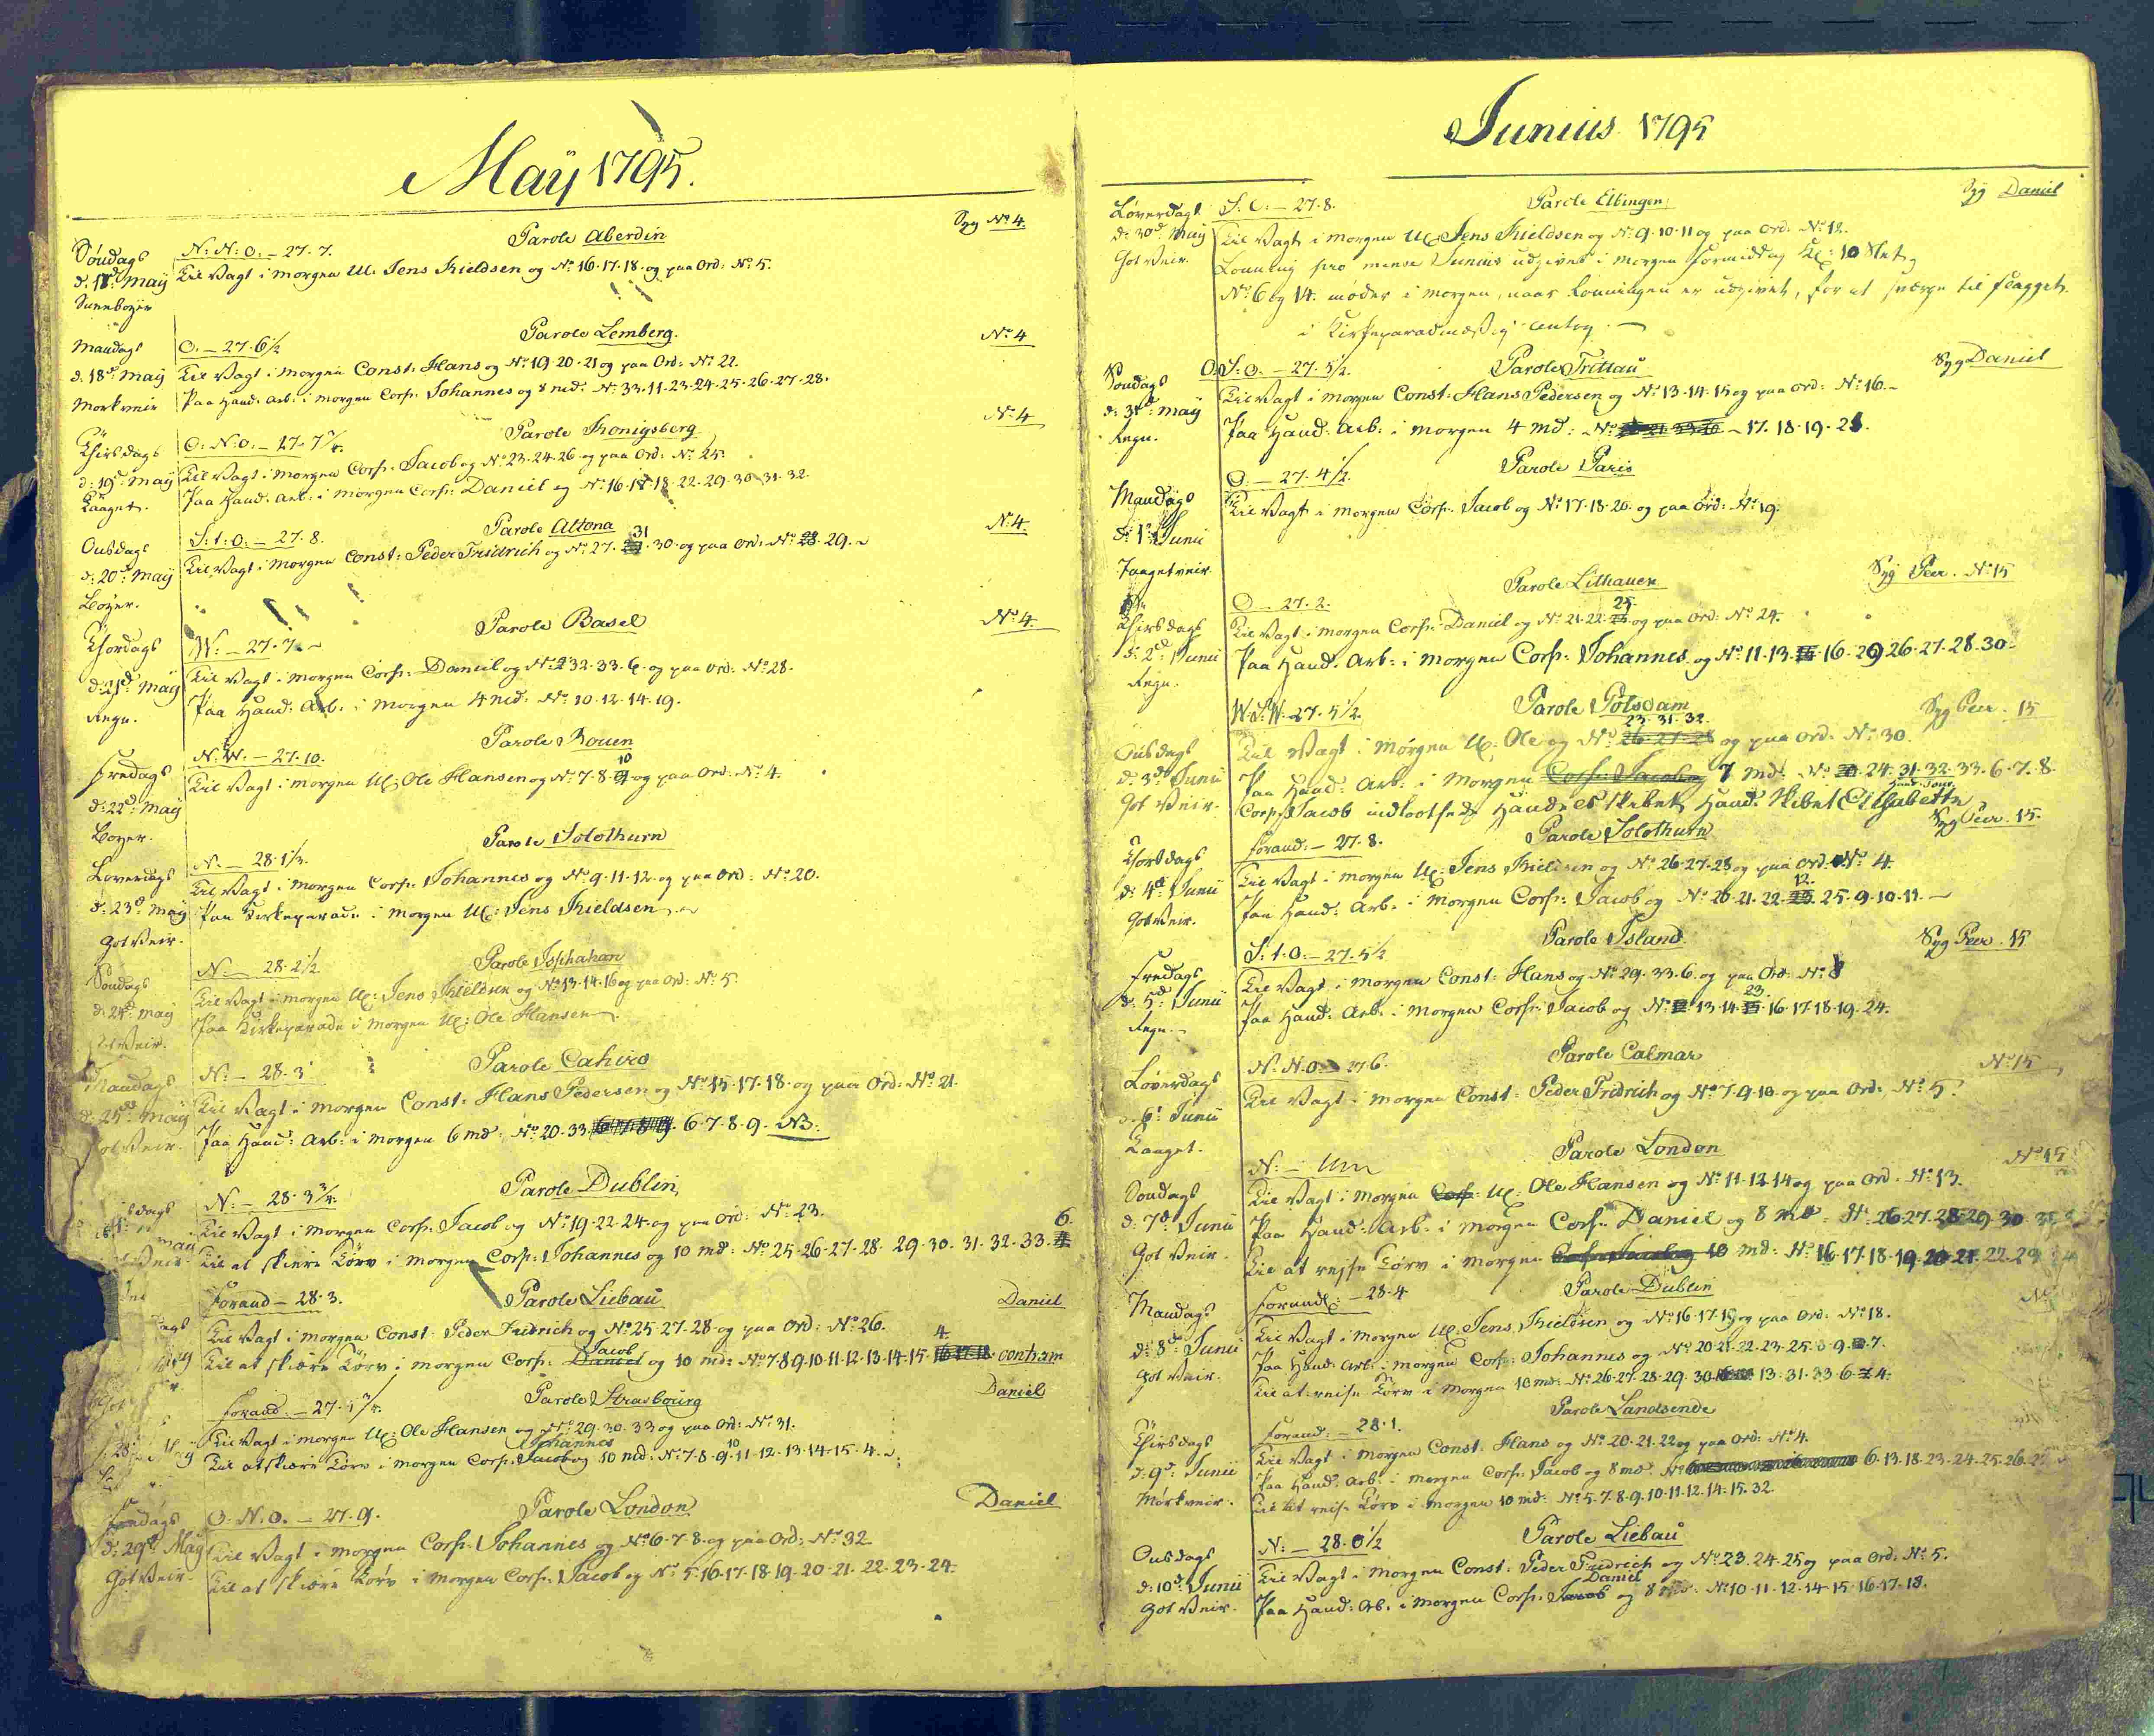 Maÿ 1795.
Syg No 4.
Søndags N: N: O: – 27. 7. Parole Aberdin
d: 17d: Maÿ Til Vagt i morgen U: Jens Kieldsen og No 16. 17. 18. og paa Ord: No 5.
Mandags O. – 27. 6 1/2 Parole Lemberg. No 4
d: 18d: Maÿ Til Vagt i morgen Const: Hans og No 19. 20. 21 og paa Ord: No 22.
Mørkveir Paa Hand: Arb: i morgen Corp: Johannes og 8 md: No 33. 11. 23. 24. 25. 26. 27. 28.
Thirsdags O: N: O: – 27. 7 Parole Konigsberg No 4
d: 19d: Maÿ Til Vagt i morgen Corp: Jacob og No 23. 24. 26 og paa Ord: No 25.
Taaget. Paa Hand: Arb: i morgen Corp: Daniel og No 16. 17 18. 22. 29. 30. 31. 32.
Onsdags S: t: O: – 27. 8. Parole Altona No 4.
31
d: 20d: Maÿ Til Vagt i morgen Const: Peder Fridrich og No 27. 30. og paa Ord: No 28. 29.
Bÿger.
Thorsdags W: – 27. 7. Parole Basel No 4.
d: 21d: Maÿ Til Vagt i morgen Corp: Daniel og No 32. 33. 6. og paa Ord: No 28.
Regn. Paa Hand: Arb: i morgen 4 md: No 10. 12. 14. 19.
Fredags N: W. – 27. 10. Parole Rouen
10
d: 22d: Maÿ Til Vagt i morgen U: Ole Hansen og No 7. 8. og paa Ord: No 4.
Løverdags N: – 28. 1/2. Parole Solothurn
d: 23d Maÿ Til Vagt i morgen Corp: Johannes og No 9. 11. 12. og paa Ord: No 20.
Got Veir. Paa Kirkeparade i morgen U: Jens Kieldsen
Søndags N: – 28. 2 1/2. Parole Ispahahan
d: 24d: Maÿ Til Vagt i morgen U: Jens Kieldsen og No 13. 14. 16 og paa Ord: No 5.
Paa Kirkeparade i morgen U: Ole Hansen
Mandags N: – 28. 3 Parole Cahiro
d: 25d: Maÿ Til Vagt i morgen Const: Hans Pedersen og No 15. 17. 18. og paa Ord: No 21.
Got Veir. Paa Hand: Arb: i morgen 6 md: No 20. 33. 6. 7. 8. 9. NB:
N: – 28. 3 3/4. Parole Dublin
Til Vagt i morgen Corp: Jacob og No 19. 22. 24. og paa Ord: No 23. 6.
Til at skiere Törv i morgen Corp: Johannes og 10 md: No 25. 26. 27. 28. 29. 30. 31. 32. 33. 4
Forand – 28. 3. Parole Liebau Daniel
Til Vagt i morgen Const: Peder Fridrich og No 25. 27. 28. og paa Ord: No 26.
Jacob 4.
Til at skiere Törv i morgen Corp: Daniel og 10 md: No 7. 8. 9. 10. 11. 12. 13. 14. 15. 16. 17. 18.
Forand: – 27. Parole Strasbourg Daniel
Til Vagt i morgen U: Ole Hansen og No 29. 30. 33 og paa Ord: No 31.
Johannes 10
Til at skiere Törv i morgen Corp: Jacob og 10 md: No 7. 8. 9. 11. 12. 13. 14. 15. 4.
Fredags O. N. O. – 27. 9. Parole London Daniel
d: 29d Maÿ Til Vagt i morgen Corp: Johannes og No 6. 7. 8. og paa Ord: No 32
Got Veir. Til at skiere Törv i morgen Corp: Jacob og No 5. 16. 17. 18. 19. 20. 21. 22. 23. 24.
Junius 1795
Løverdags S: O: – 27. 8. Parole Elbingen Syg Daniel
d: 30d Maÿ Til Vagt i morgen U: Jens Kieldsen og No 9. 10. 11 og paa Ord: No 12.
Got Veir. Lønning pro mense Junius udgives i morgen Formiddag Kl: 10 Slet,
No 6 og 14. møder i morgen, naar Lønningen er udgivet, for at sværge til Flagget.
i Kirkeparademæssig Antog. –
Søndags O. S: O. – 27. 5 1/2. Parole Trittau Syg Daniel
d: 31d: Maÿ Til Vagt i morgen Const: Hans Pedersen og No 13. 14. 15 og paa Ord: No 16. –
Regn. Paa Hand: Arb: i morgen 4 md: No 17. 18. 19. 21.
Mandags O: – 27. 4 1/2. Parole Paris
Til Vagt i morgen Corp: Jacob og No 17. 18. 20. og paa Ord: No 19.
d: 1d: Junii
Taaget veir
Parole Lithauen Syg Peer. No 15
Thirsdags O – 27. 2. 25.
Til Vagt i morgen Corp: Daniel og No 21. 22. og paa Ord: No 24.
d: 2d: Junii Paa Hand: Arb: i morgen Corp: Johannes og No 11. 13. 16. 29 26. 27. 28. 30.
Regn.
W. S: W. 27. 5 1/2. Parole Potsdam Syg Peer. 15
23. 31. 32.
Onsdags Til Vagt i morgen U: Ole og No 26. 27. 28 og paa Ord: No 30.
d: 3d Junii Paa Hand: Arb: i morgen Corp: Jacob og 7 md: No 24. 31. 32. 33. 6. 7. 8.
Got Veir. Corp: Jacob indlootsede Handels Skibet Elisabeth
Thorsdags Forand: – 27. 8. Parole Solothurn Syg Peer. 15.
d: 4d Junii Til Vagt i morgen U: Jens Kieldsen og No 26. 27. 28 og paa Ord: No 4.
12.
Got Veir. Paa Hand: Arb: i morgen Corp: Jacob og No 20. 21. 22. 25. 9. 10. 11. –
Fredags S: t. O: – 27. 5 1/2 Parole Island Syg Peer. 15
d: 5d: Junii Til Vagt i morgen Const: Hans og No 29. 33. 6. og paa Ord: No 8
23.
Regn. Paa Hand: Arb: i morgen Corp: Jacob og No 13. 14. 16. 17. 18. 19. 24.
Løverdags N: N. O. 27 6. Parole Calmar No 15
d: 6d: Junii Til Vagt i morgen Const: Peder Fridrich og No 7. 9. 10. og paa Ord: No 5.
Taaget.
N: – Parole London No 15
Søndags Til Vagt i morgen Corp: U: Ole Hansen og No 11. 12. 14 og paa Ord. No 13.
d: 7d Junii Paa Hand: Arb: i morgen Corp: Daniel og 8 md: No 26. 27. 28. 29. 30.
Got Veir. Til at rejse Törv i morgen Corp: Jacob og 10 md: No 16. 17. 18. 19. 20. 21. 22. 23
Mandags Forand: – 28. 4 Parole Dublin
d: 8d Junii Til Vagt i morgen U: Jens Kieldsen og No 16. 17. 19 og paa Ord: No 18.
Got Veir. Paa Hand: Arb: i morgen Corp: Johannes og No 20. 21. 22. 23. 25. 8. 9. 7.
Til at reise Törv i morgen 10 md: No 26. 27. 28. 29. 30. 13. 31. 33. 6. 4.
Parole Landsende
Thirsdags Forand: – 28. 1.
Til Vagt i morgen Const: Hans og No 20. 21. 22 og paa Ord: No 4.
d: 9d: Junii Paa Hand: Arb: i morgen Corp: Jacob og 8 md: No 6. 13. 18. 23. 24. 25. 26. 27
Mörkveir. Til at reise Törv i morgen 10 md: No 5. 7. 8. 9. 10. 11. 12. 14. 15. 32.
Onsdags N: – 28. 0 1/2 Parole Liebau
d: 10d: Junii Til Vagt i morgen Const: Peder Fridrich og No 23. 24. 25 og paa Ord: No 5.
Daniel
Got Veir. Paa Hand: Arb: i morgen Corp: Jacob og 8 md: No 10. 11. 12. 14. 15. 16. 17. 18.